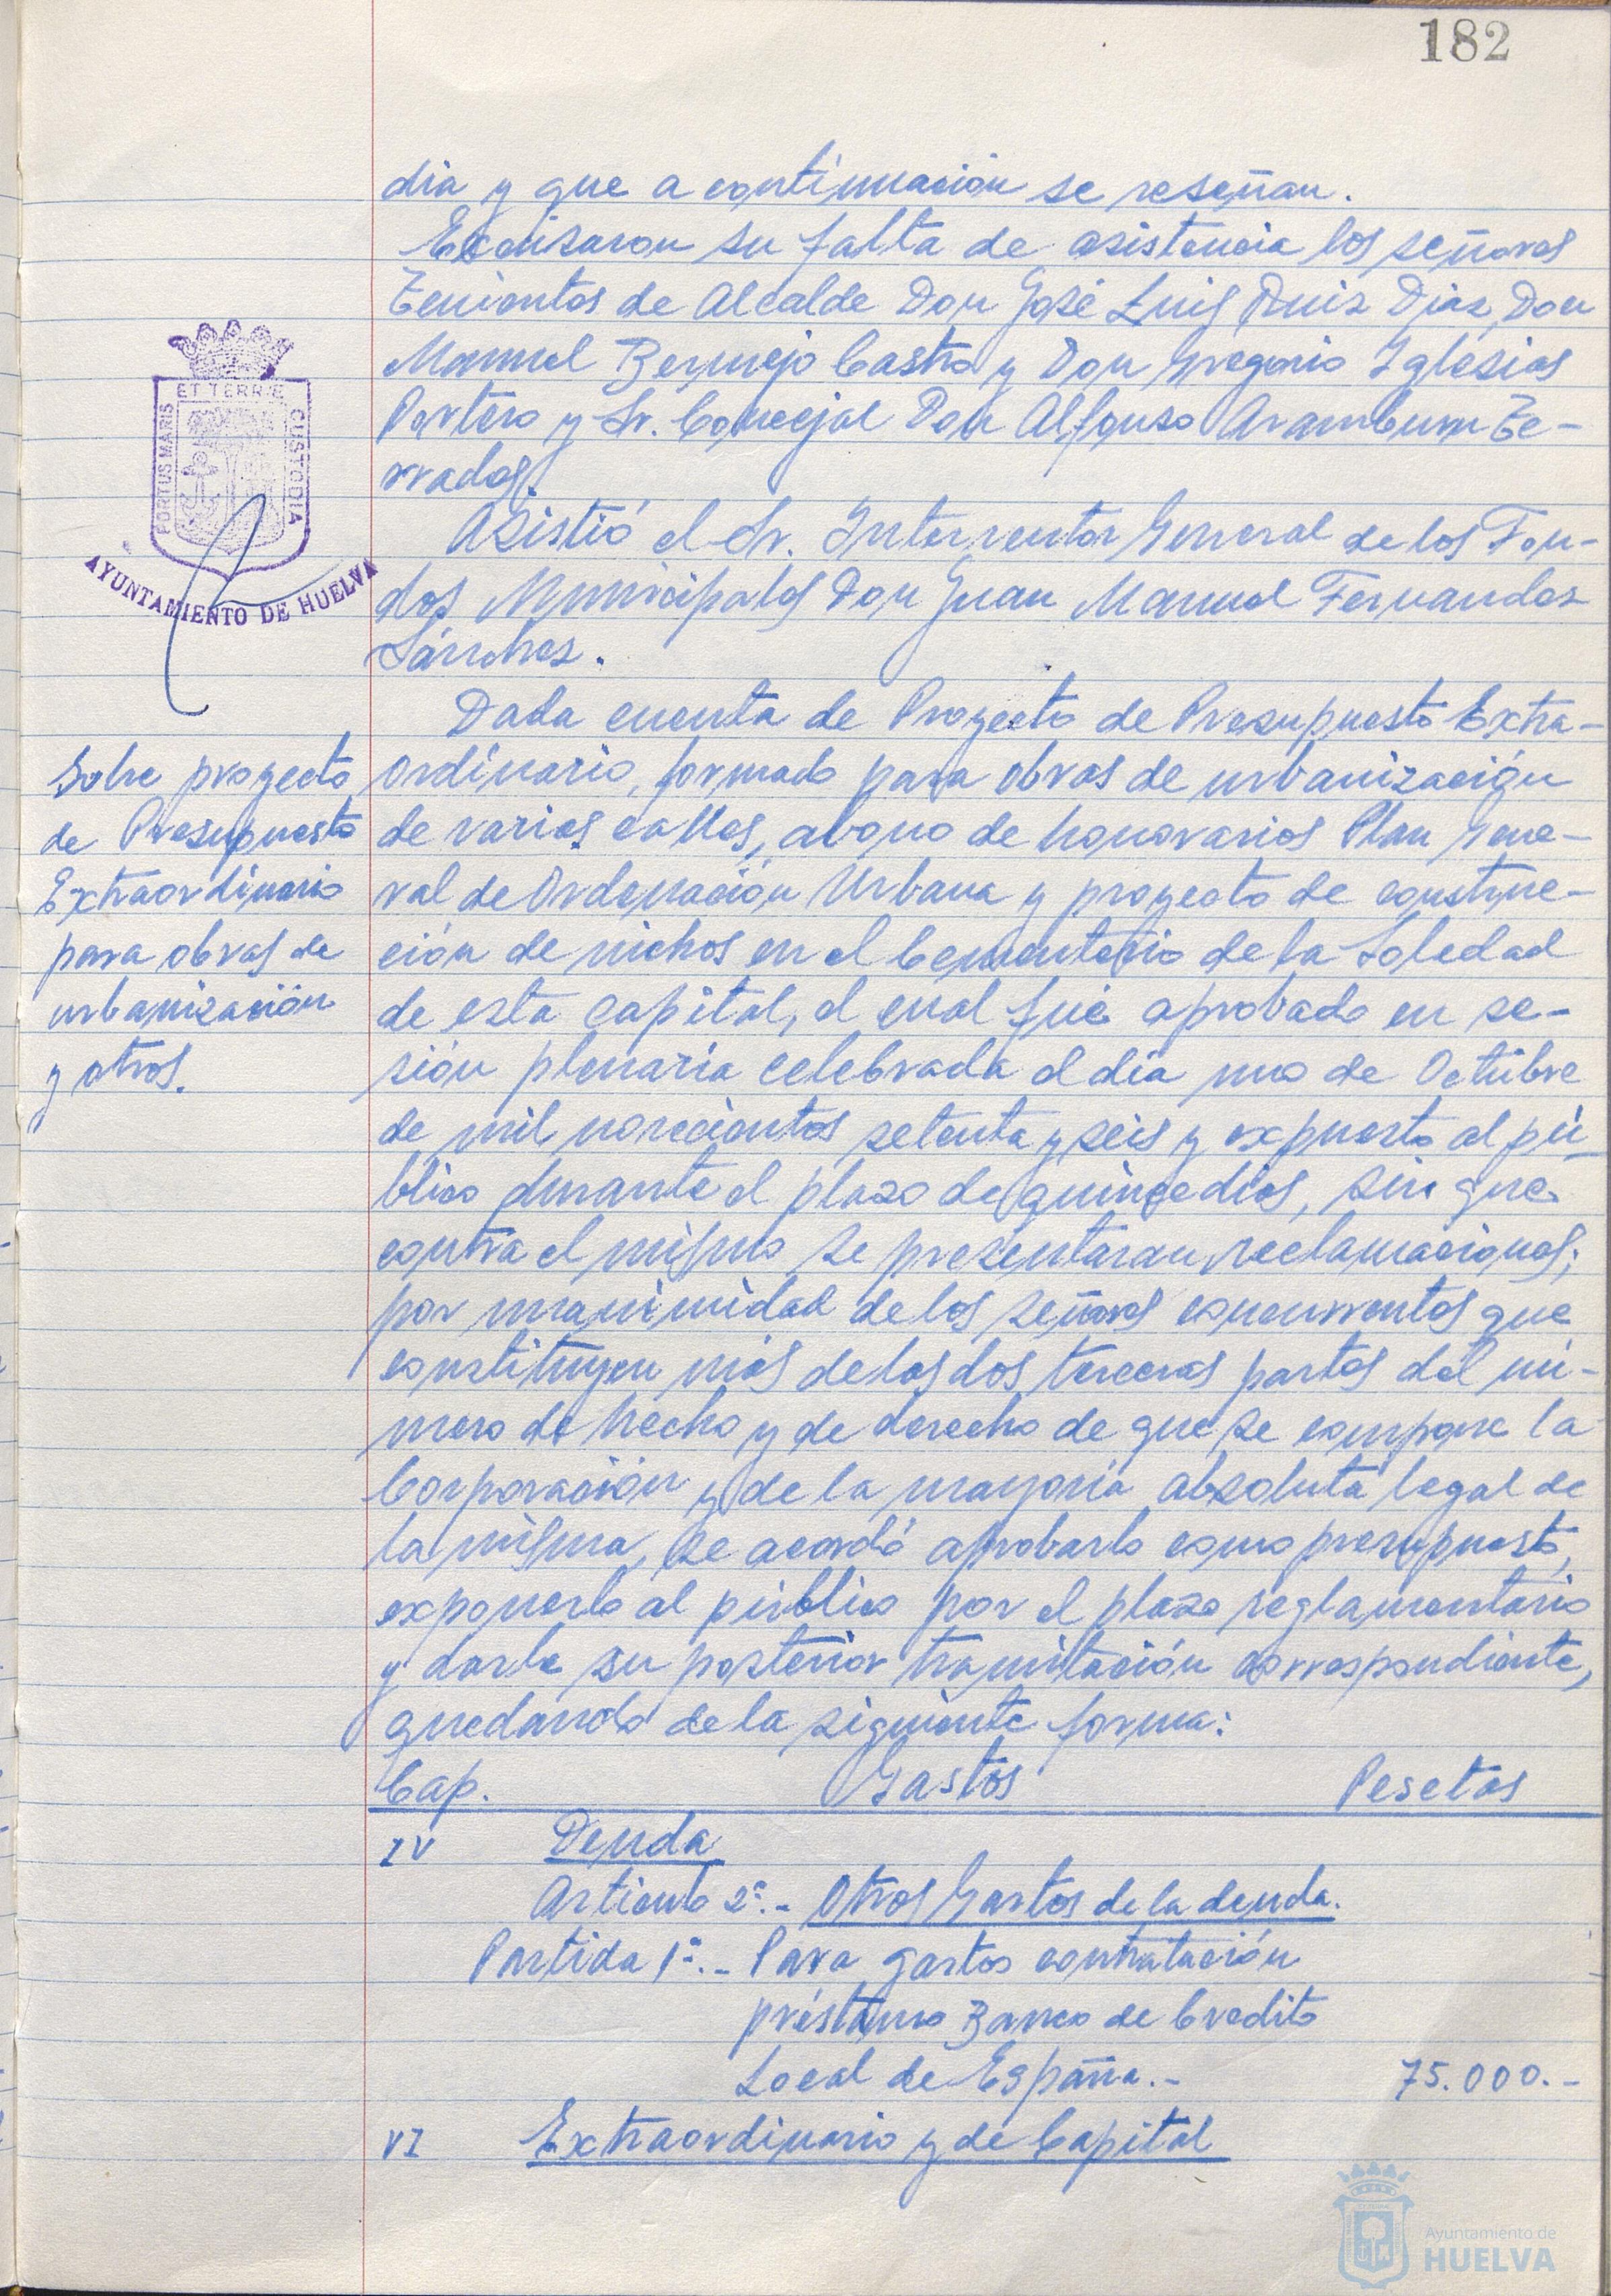 182
dia y que a continuación se reseñan.
Excusaron su falta de asistencia los señores
Tenientes de Alcalde Don José Luis Ruiz Diaz, Don
Manuel Bermejo Castro y Don Gregorio Iglesias
Portero y Sr. Concejal Don Alfonso Aramburu Te-
rrados.
ET TERRÆ
PORTUS MARIS
CUSTODIA
AYUNTAMIENTO DE HUELVA
Asistió el Sr. Interventor General de los Fon-
dos Municipales Don Juan Manuel Fernandez
Sánchez.
Sobre proyecto
de Presupuesto
Extraordinario
para obras de
urbanización
y otros.
Dada cuenta de Proyecto de Presupuesto Extra-
ordinario, formado para obras de urbanización
de varias calles, abono de honorarios Plan Gene-
ral de Ordenación Urbana y proyecto de construc-
ción de nichos en el Cementerio de la Soledad
de esta capital, el cual fué aprobado en se-
sión plenaria celebrada el dia uno de Octubre
de mil novecientos setenta y seis y expuesto al pú-
blico durante el plazo de quince dias, sin que
contra el mismo se presentaran reclamaciones;
por unanimidad de los señores concurrentes que
constituyen más de las dos terceras partes del nú-
mero de hecho y de derecho de que se compone la
Corporación y de la mayoria absoluta legal de
la misma, se acordó aprobarlo como presupuesto,
exponerlo al público por el plazo reglamentario
y darle su posterior tramitación correspondiente,
quedando de la siguiente forma:
Cap. Gastos Pesetas
IV Deuda
Articulo 2º.- Otros Gastos de la deuda.
Partida 1ª.- Para gastos contratación
préstamo Banco de Credito
Local de España.- 75.000.-
VI Extraordinario y de Capital
Ayuntamiento de
HUELVA